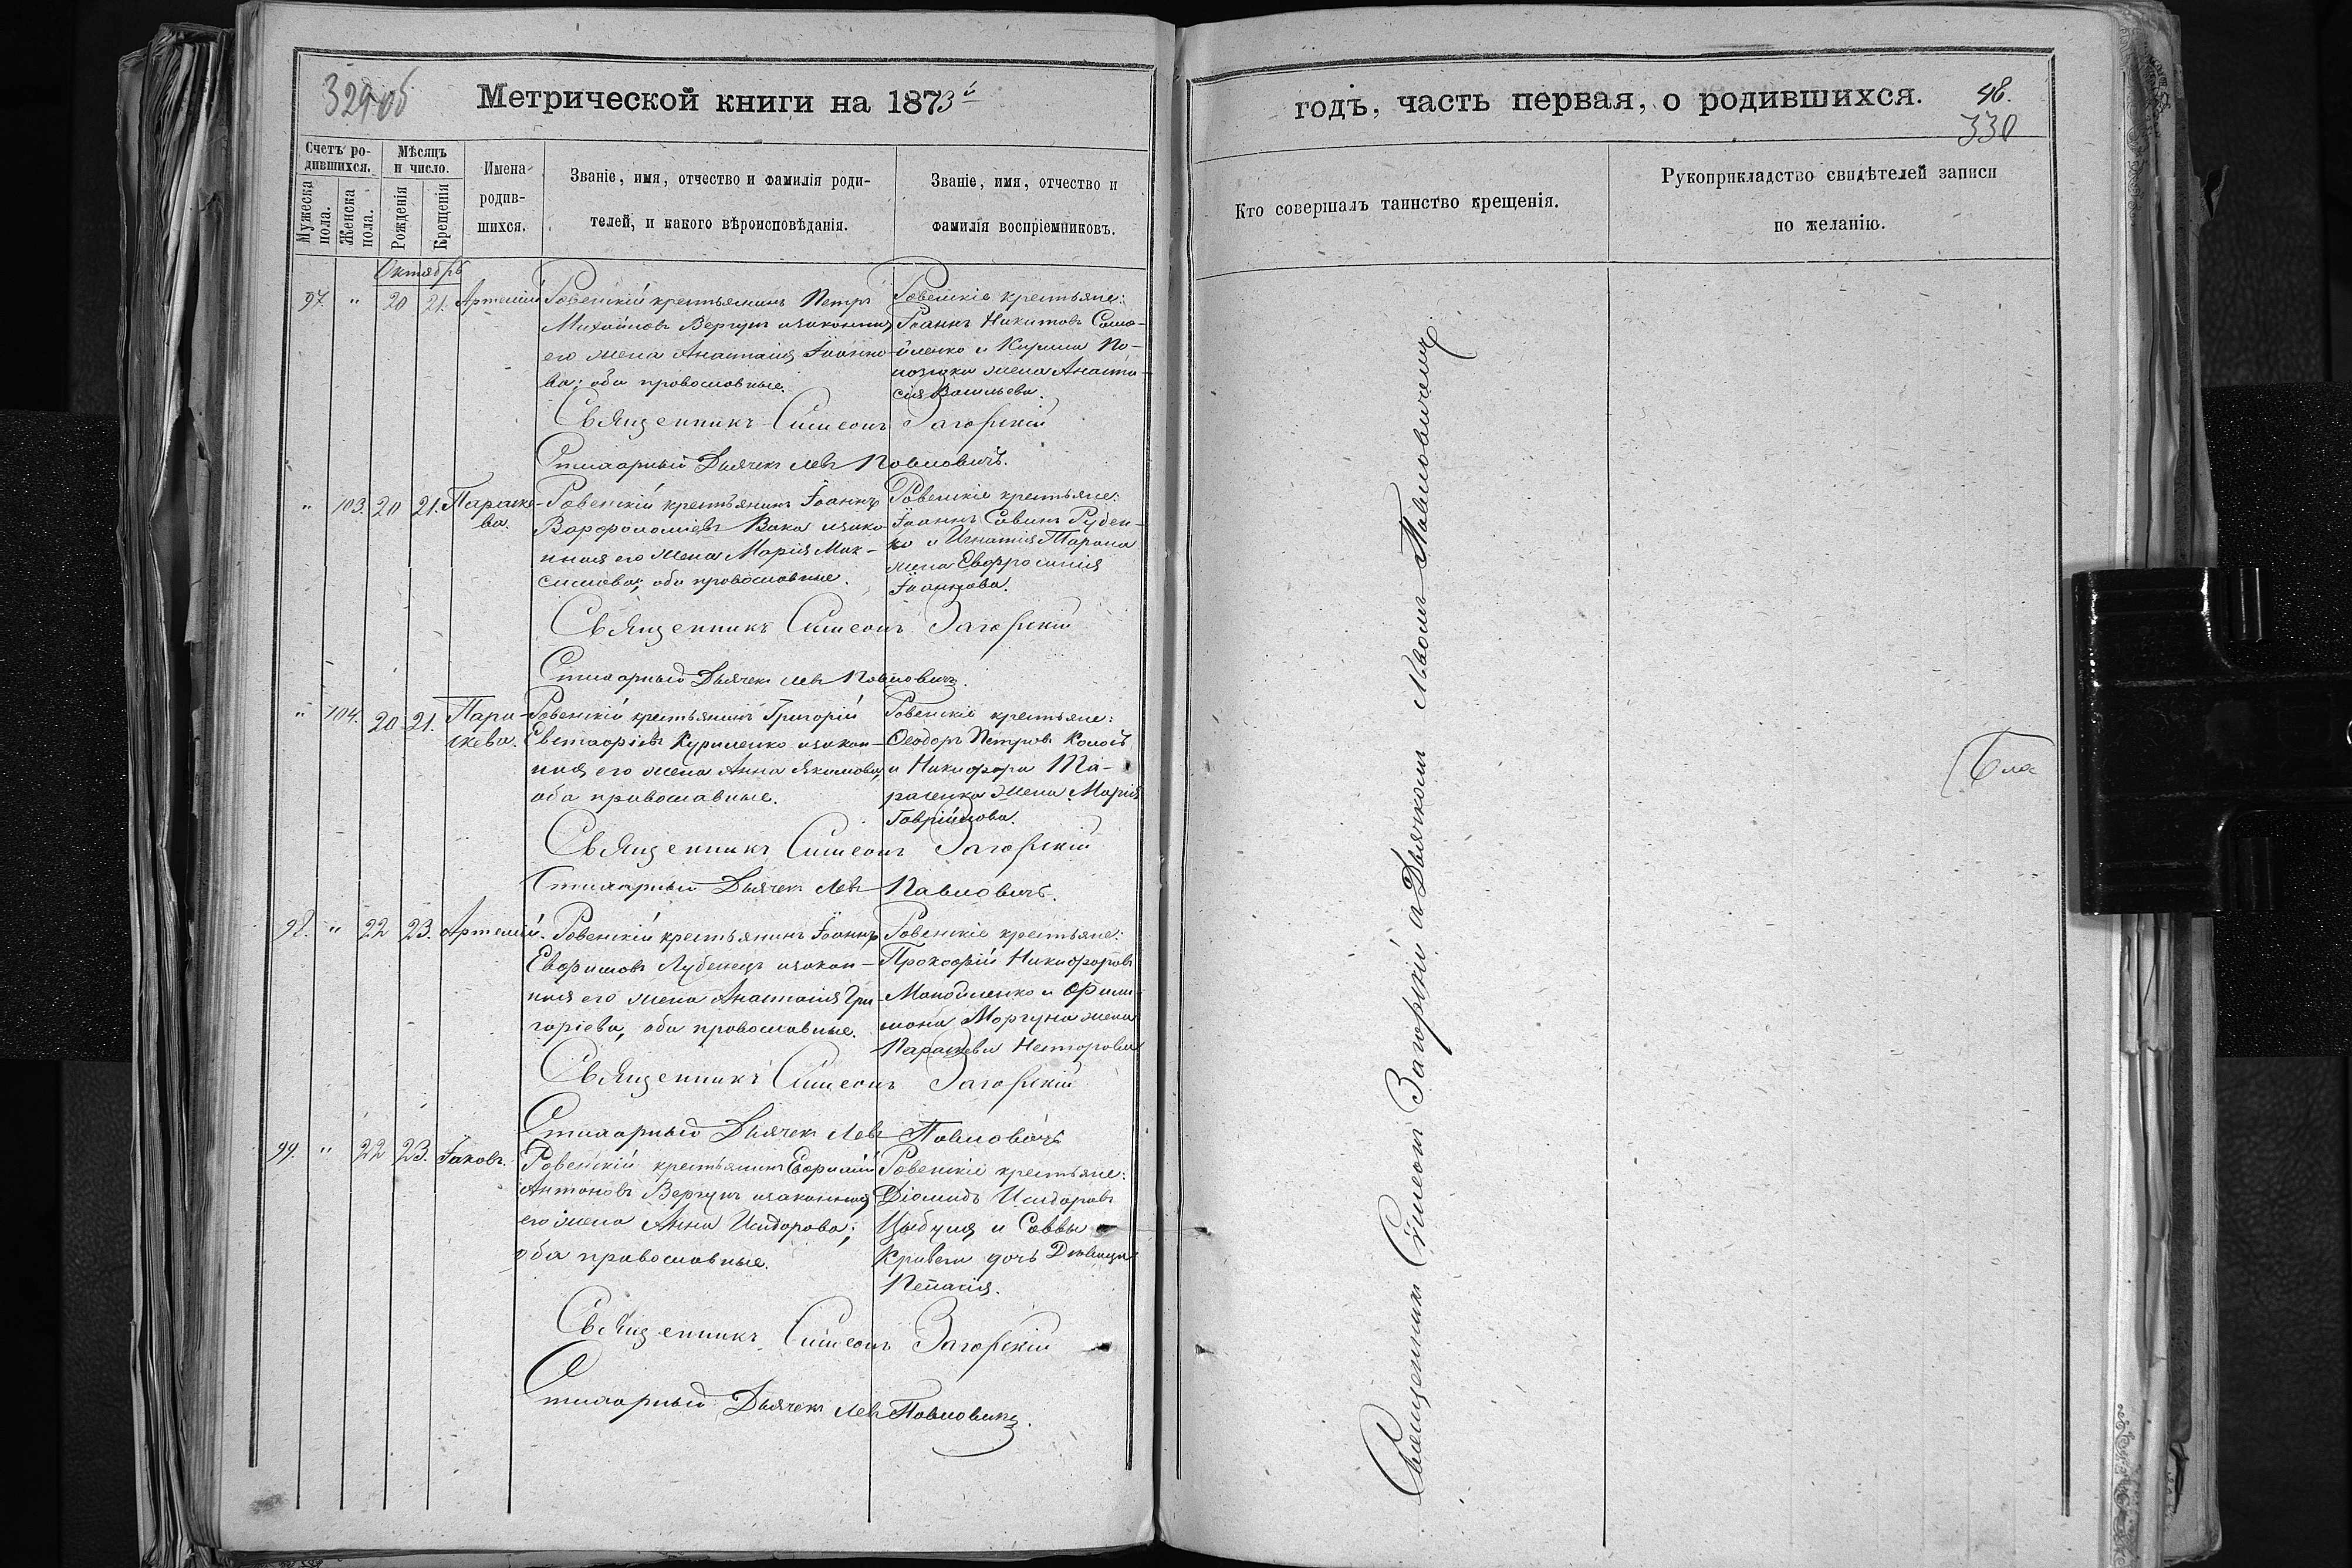 329об
Метрической книги на 1873й
Счетъ родившихся.
Мужеска пола.
Женска пола.
Мѣсяцъ и число.
Рожденія
Крещенія
Имена родив-
шихся.
Званіе, имя, отчество и фамилія роди-
телей, и какого вѣроисповѣданія.
Званіе, имя, отчество и
фамилія воспріемниковъ.
Октябрь
97. " 20 21. Артемій
Ровенскій крестьянинъ Петръ
Михайловъ Вергунъ изаконная
его жена Анастасія Іоанно-
ва; оба православные.
Ровенскіе крестьяне:
Іоаннъ Никитовъ Само-
йленко и Кирила По-
жена Анаста-
сія Васильева.
Священникъ Симеонъ Загорскій
Стихарный Дьячекъ Левъ Павловичъ.
" 103. 20 21. Параске-
ва.
Ровенскій крестьянинъ Іоаннъ
Варфоломіевъ Вака изако-
нная его жена Марія Мак-
симова; оба православные.
Ровенскіе крестьяне:
Іоаннъ Савинъ Рубен-
ко и Игнатія Тарана
жена Евфросинія
Іоаннова.
Священникъ Симеонъ Загорскій
Стихарный Дьячекъ Левъ Павловичъ.
" 104. 20 21. Пара-
скева.
Ровенскій крестьянинъ Григорій
Евстафіевъ Куриленко изакон-
ная его жена Анна Якимова,
оба православные.
Ровенскіе крестьяне:
Ѳеодоръ Петровъ Колосъ
и Никифора Та-
расенка жена Марія
Гавріилова.
Священникъ Симеонъ Загорскій
Стихарный Дьячекъ Левъ Павловичъ.
98. " 22 23. Артемій.
Ровенскій крестьянинъ Іоаннъ
Евфимовъ Лубенецъ изакон-
ная его жена Анастасія Гри-
горіева, оба православные.
Ровенскіе крестьяне:
Прокофій Никифоровъ
Манойленко и Фили-
мона Моргуна жена
Параскева Несторова
Священникъ Симеонъ Загорскій
Стихарный Дьячекъ Левъ Павловичъ
99. " 22 23. Іаковъ.
Ровенскій крестьянинъ Евфимій
Антоновъ Вергунъ изаконная
его жена Анна Исидорова;
оба православные.
Ровенскіе крестьяне:
Діомидъ Исидоровъ
Цыбуля и Саввы
Кривеги дочь Дѣвица
Пелагія.
Священникъ Симеонъ Загорскій
Стихарный Дьячекъ Левъ Павловичъ.
годъ, часть первая, о родившихся.
48.
330
Кто совершалъ таинство крещенія.
Рукоприкладство свидѣтелей записи
по желанію.
Священникъ Симеонъ Загорскій съ Дьячкомъ Львомъ Павловичемъ.